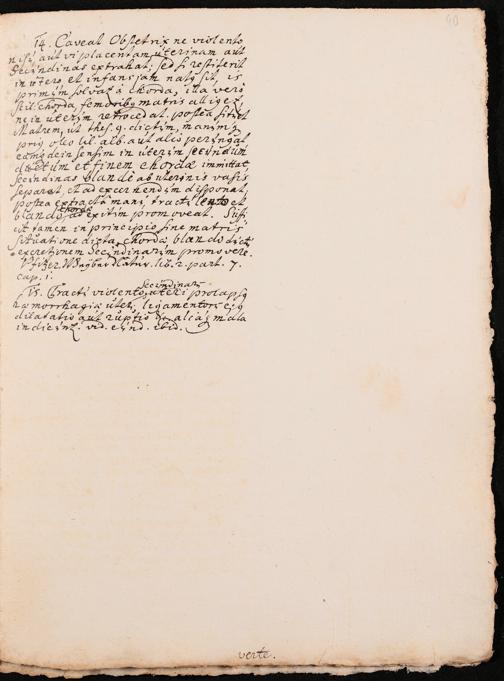 90
14. Caveat Obstetrix ne violento
nisu, aut vi placentam uterinam aut
Secundinas extrahat; sed si restiterit
in utero, et infans jam natus sit, is
primum solvat à chorda, illa verò
scil: chorda femoribus matris alliget,
ne in uterum retrocedat. postea situet
Matrem, ut thes. 9. dictum, manum
prius oleo lil. alb. aut alio perungat
eamq dein sensim in uterum secundum
ductum et finem chordae immittat,
secundinas blandè ab uterinis vasis
separet, et ad excernendum disponat,
postea extracta manu, tractu lento et
blando chordae ad exitum promoveat.
ut tamen in principio sine matris
situatione dicta, chorda blando
excretionem Secundinarum promovere.
lib. 2. part. 7.
cap. 1.
15. Tractu violento secundinarum uteri prolapsus
haemorrhagia utet; ligamentorum ejus
dilatatio aut ruptio & alia mala
vid. eund. ibid.
verte.